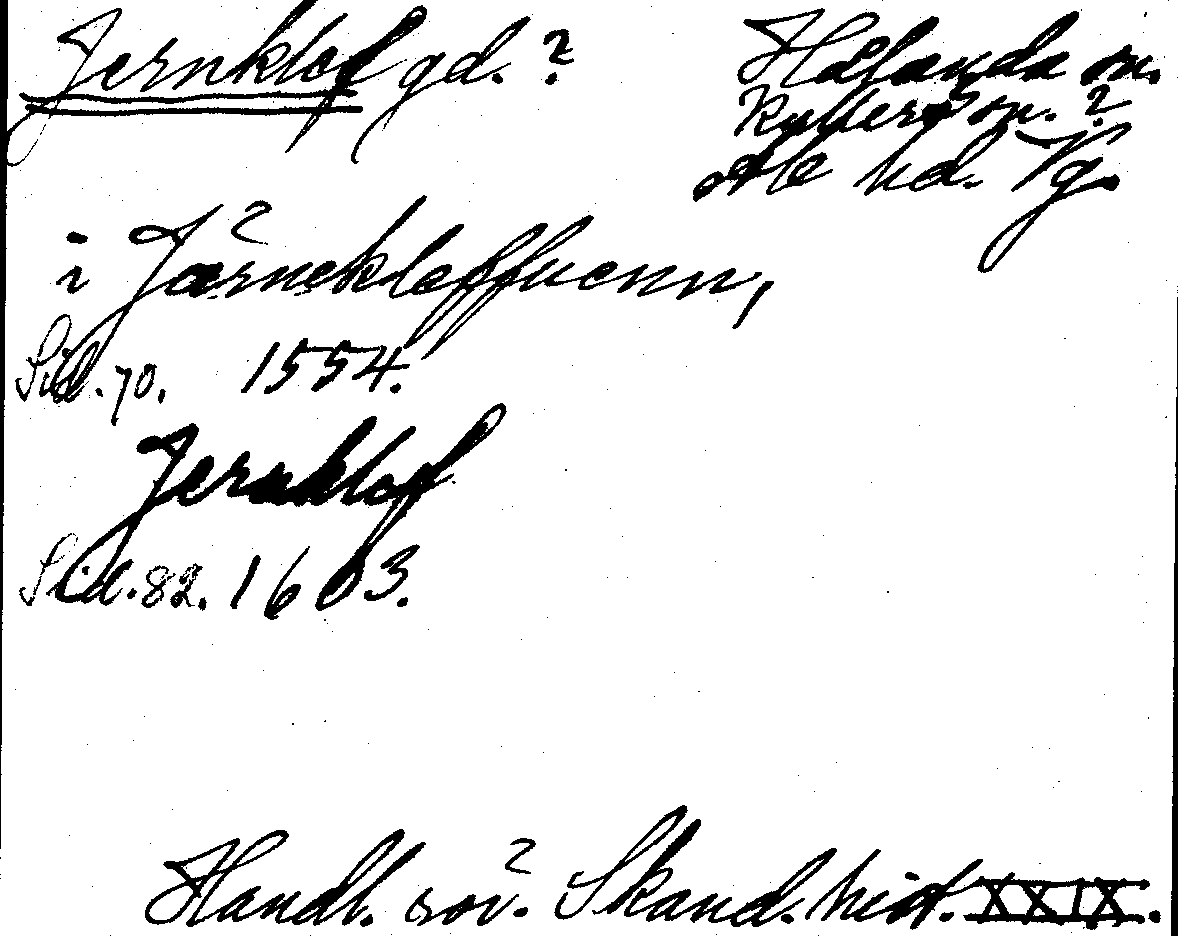 Jernklef gd. ?
Hålanda sn.
Kyllers sn. ?
Ale hd. Vg.
i Järnekleffuenn,
Sid. 70. 1554.
Jernklef
Sid. 82. 1603.
Handl. rör. Skand. hist. XXIX.